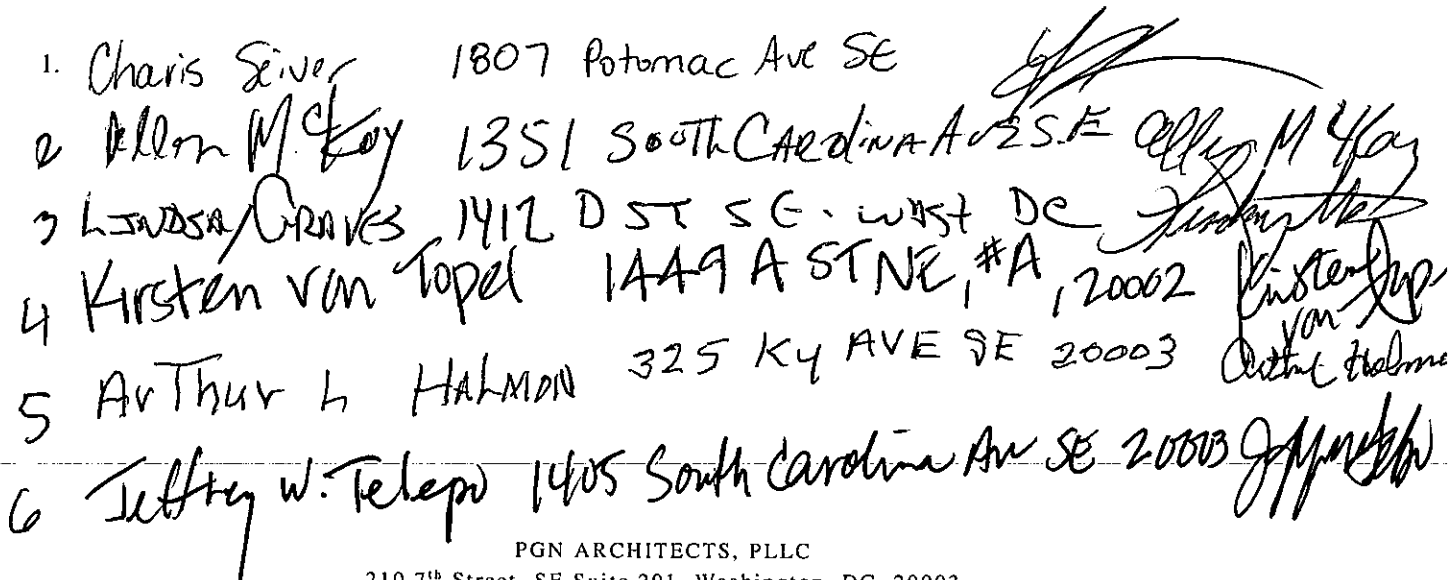 1. Charis Seiver 1807 Potomac Ave SE
2 Allen McKoy 1351 South CArolinA Ave S.E Allen McKoy
3 LINDSAY GRAVES 1412 D ST SE. WASH DC
4 Kirsten van Topel 1449 A ST NE, #A, 20002 Kirsten van Top
5 ArThur L HALMON 325 Ky AVE SE 20003 Arthur Halmon
6 Jeffrey W. Telepo 1405 South Carolina Av SE 20003
PGN ARCHITECTS, PLLC
210 7th Street, SE Suite 201, Washington, DC 20003